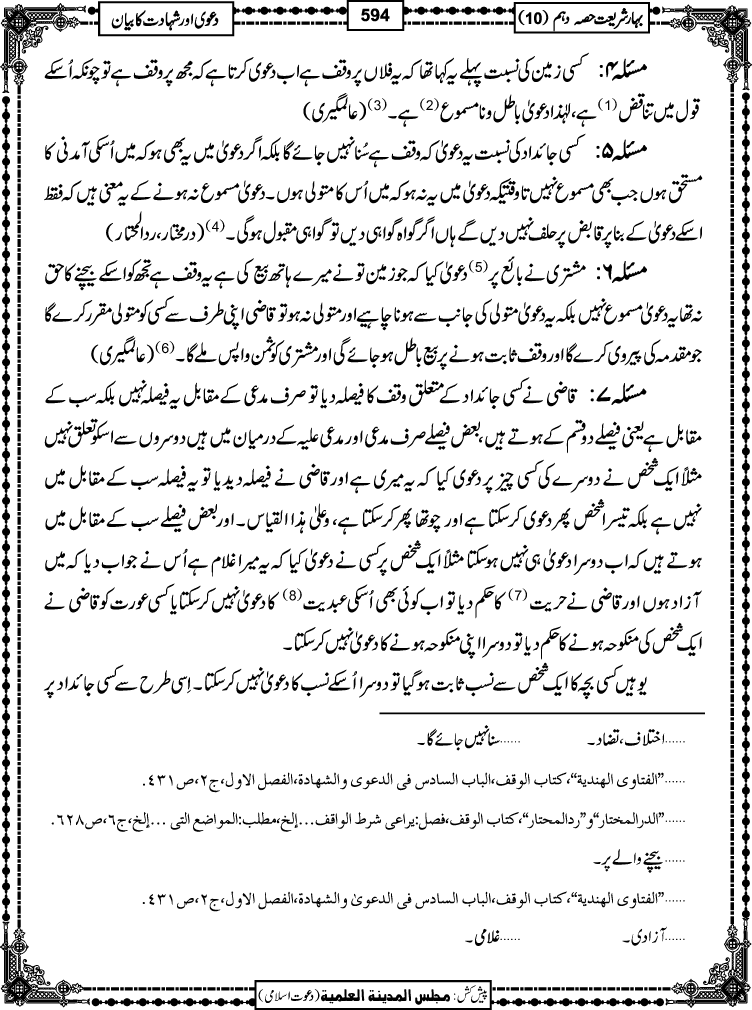 بہارِ شریعت حصہ دہم (10)
594
دعویٰ اور شہادت کا بیان
مسئلہ ۴: کسی زمین کی نسبت پہلے یہ کہا تھا کہ یہ فلاں پر وقف ہے اب دعویٰ کرتا ہے کہ مجھ پر وقف ہے تو چونکہ اُسکے
قول میں تناقض (1) ہے، لہٰذا دعویٰ باطل و نا مسموع (2) ہے۔ (3) (عالمگیری)
مسئلہ ۵: کسی جائداد کی نسبت یہ دعویٰ کہ وقف ہے سُنا نہیں جائے گا بلکہ اگر دعویٰ میں یہ بھی ہو کہ میں اُسکی آمدنی کا
مستحق ہوں جب بھی مسموع نہیں تاوقتیکہ دعویٰ میں یہ نہ ہو کہ میں اُس کا متولی ہوں۔ دعویٰ مسموع نہ ہونے کے یہ معنی ہیں کہ فقط
اسکے دعویٰ کے بنا پر قابض پر حلف نہیں دیں گے ہاں اگر گواہ گواہی دیں تو گواہی مقبول ہوگی۔ (4) (درمختار، ردالمحتار)
مسئلہ ۶: مشتری نے بائع پر (5) دعویٰ کیا کہ جو زمین تو نے میرے ہاتھ بیع کی ہے یہ وقف ہے تجھ کو اسکے بیچنے کا حق
نہ تھا یہ دعویٰ مسموع نہیں بلکہ یہ دعویٰ متولی کی جانب سے ہونا چاہیے اور متولی نہ ہو تو قاضی اپنی طرف سے کسی کو متولی مقرر کرے گا
جو مقدمہ کی پیروی کرے گا اور وقف ثابت ہونے پر بیع باطل ہو جائے گی اور مشتری کو ثمن واپس ملے گا۔ (6) (عالمگیری)
مسئلہ ۷: قاضی نے کسی جائداد کے متعلق وقف کا فیصلہ دیا تو صرف مدعی کے مقابل یہ فیصلہ نہیں بلکہ سب کے
مقابل ہے یعنی فیصلے دو قسم کے ہوتے ہیں، بعض فیصلے صرف مدعی اور مدعی علیہ کے درمیان میں ہیں دوسروں سے اسکو تعلق نہیں
مثلاً ایک شخص نے دوسرے کی کسی چیز پر دعویٰ کیا کہ یہ میری ہے اور قاضی نے فیصلہ دیدیا تو یہ فیصلہ سب کے مقابل میں
نہیں ہے بلکہ تیسرا شخص پھر دعویٰ کرسکتا ہے اور چوتھا پھر کرسکتا ہے، وعلیٰ ہذا القیاس۔ اور بعض فیصلے سب کے مقابل میں
ہوتے ہیں کہ اب دوسرا دعویٰ ہی نہیں ہوسکتا مثلاً ایک شخص پر کسی نے دعویٰ کیا کہ یہ میرا غلام ہے اُس نے جواب دیا کہ میں
آزاد ہوں اور قاضی نے حریت (7) کا حکم دیا تو اب کوئی بھی اُسکی عبدیت (8) کا دعویٰ نہیں کرسکتا یا کسی عورت کو قاضی نے
ایک شخص کی منکوحہ ہونے کا حکم دیا تو دوسرا اپنی منکوحہ ہونے کا دعویٰ نہیں کرسکتا۔
یوہیں کسی بچہ کا ایک شخص سے نسب ثابت ہوگیا تو دوسرا اُسکے نسب کا دعویٰ نہیں کرسکتا۔ اِسی طرح سے کسی جائداد پر
......اختلاف، تضاد۔ ......سنا نہیں جائے گا۔
......"الفتاوی الهندية"، کتاب الوقف، الباب السادس فی الدعوی والشهادة، الفصل الاول، ج۲، ص۴۳۱.
......"الدرالمختار" و "ردالمحتار"، کتاب الوقف، فصل: یراعی شرط الواقف...إلخ، مطلب: المواضع التی ...إلخ، ج۶، ص۶۲۸.
......بیچنے والے پر۔
......"الفتاوی الهندية"، کتاب الوقف، الباب السادس فی الدعویٰ والشهادة، الفصل الاول، ج۲، ص۴۳۱.
......آزادی۔ ......غلامی۔
پیش کش: مجلس المدينة العلمية (دعوت اسلامی)